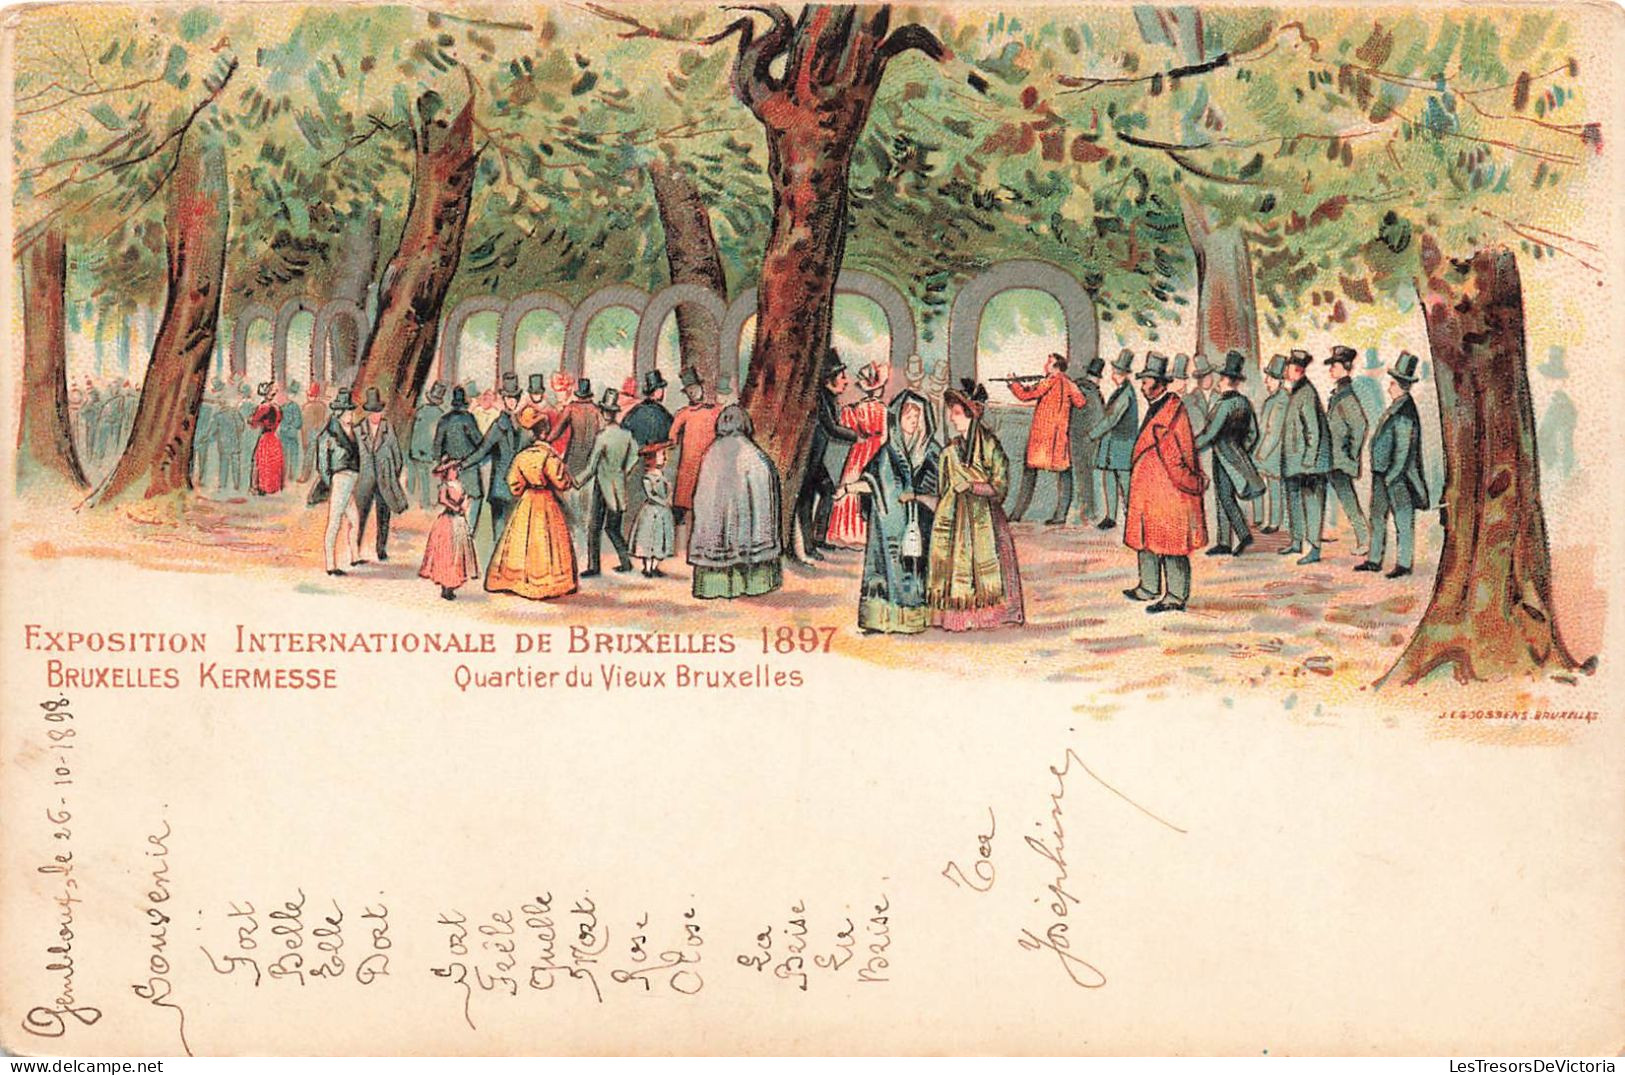 EXPOSITION INTERNATIONALE DE BRUXELLES 1897
BRUXELLES KERMESSE Quartier du Vieux Bruxelles
J. E. GOOSSENS. BRUXELLES
Gembloux, le 26-10-1898.
Souvenir.
Fort
Belle
Elle
Dort.
Sort
Frêle
Quelle
Mort.
Rose
Close.
La
Brise
L'a
Brise.
Ta
Joséphine.
LesTresorsDeVictoria